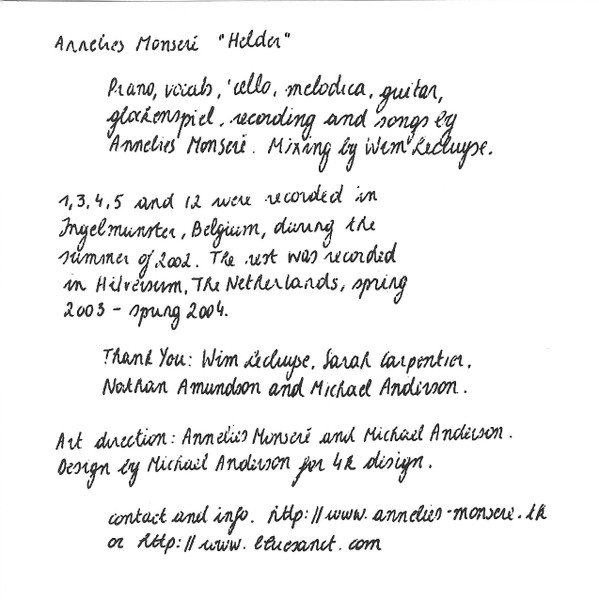 Annelies Monseré "Helder"
Piano, vocals, 'cello, melodica, guitar,
glockenspiel, recording and songs by
Annelies Monseré. Mixing by Wim Lecluyse.
1, 3, 4, 5 and 12 were recorded in
Ingelmunster, Belgium, during the
summer of 2002. The rest was recorded
in Hilversum, The Netherlands, spring
2003 - spring 2004.
Thank You: Wim Lecluyse, Sarah Carpentier,
Nathan Amundson and Michael Anderson.
Art direction: Annelies Monseré and Michael Anderson.
Design by Michael Anderson for 4k design.
contact and info. http://www.annelies-monsere.tk
or http://www.bluesanct.com